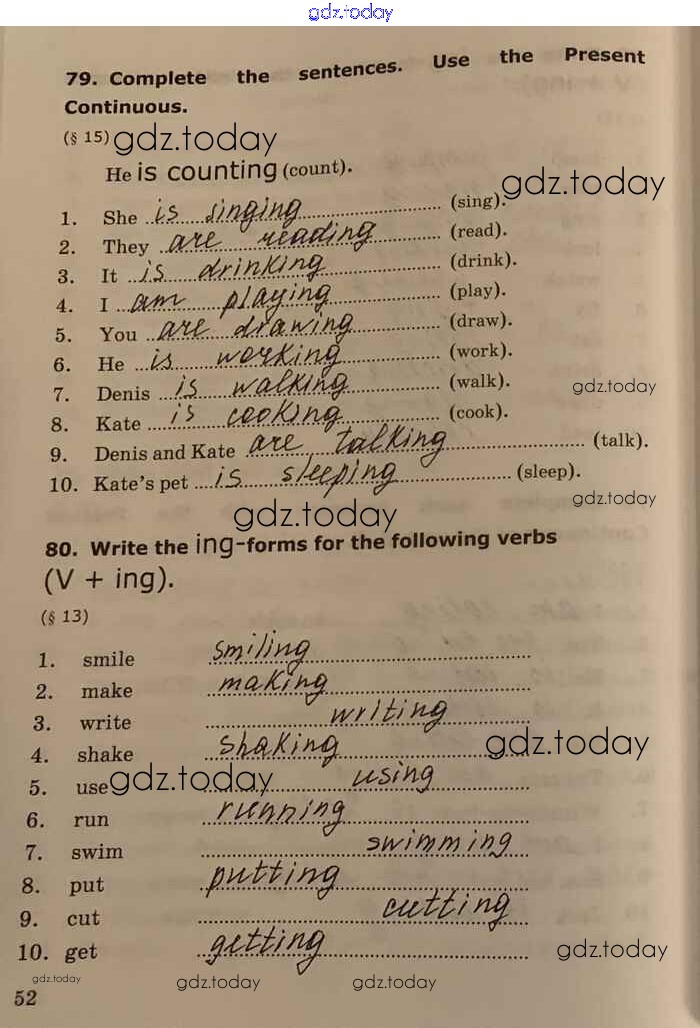 gdz.today
79. Complete the sentences. Use the Present
Continuous.
(§ 15) gdz.today
He is counting (count).
gdz.today
1. She ..is singing.......... (sing).
2. They ..are reading.......... (read).
3. It ..is drinking.......... (drink).
4. I ..am playing.......... (play).
5. You ..are drawing.......... (draw).
6. He ..is working.......... (work).
7. Denis ..is walking.......... (walk).
gdz.today
8. Kate ..is cooking.......... (cook).
9. Denis and Kate are talking.......... (talk).
10. Kate's pet ..is sleeping.......... (sleep).
gdz.today
gdz.today
80. Write the ing-forms for the following verbs
(V + ing).
(§ 13)
1. smile smiling
2. make making
3. write writing
4. shake shaking
gdz.today
5. use using
gdz.today
6. run running
7. swim swimming
8. put putting
9. cut cutting
10. get getting
gdz.today
gdz.today
gdz.today
gdz.today
52